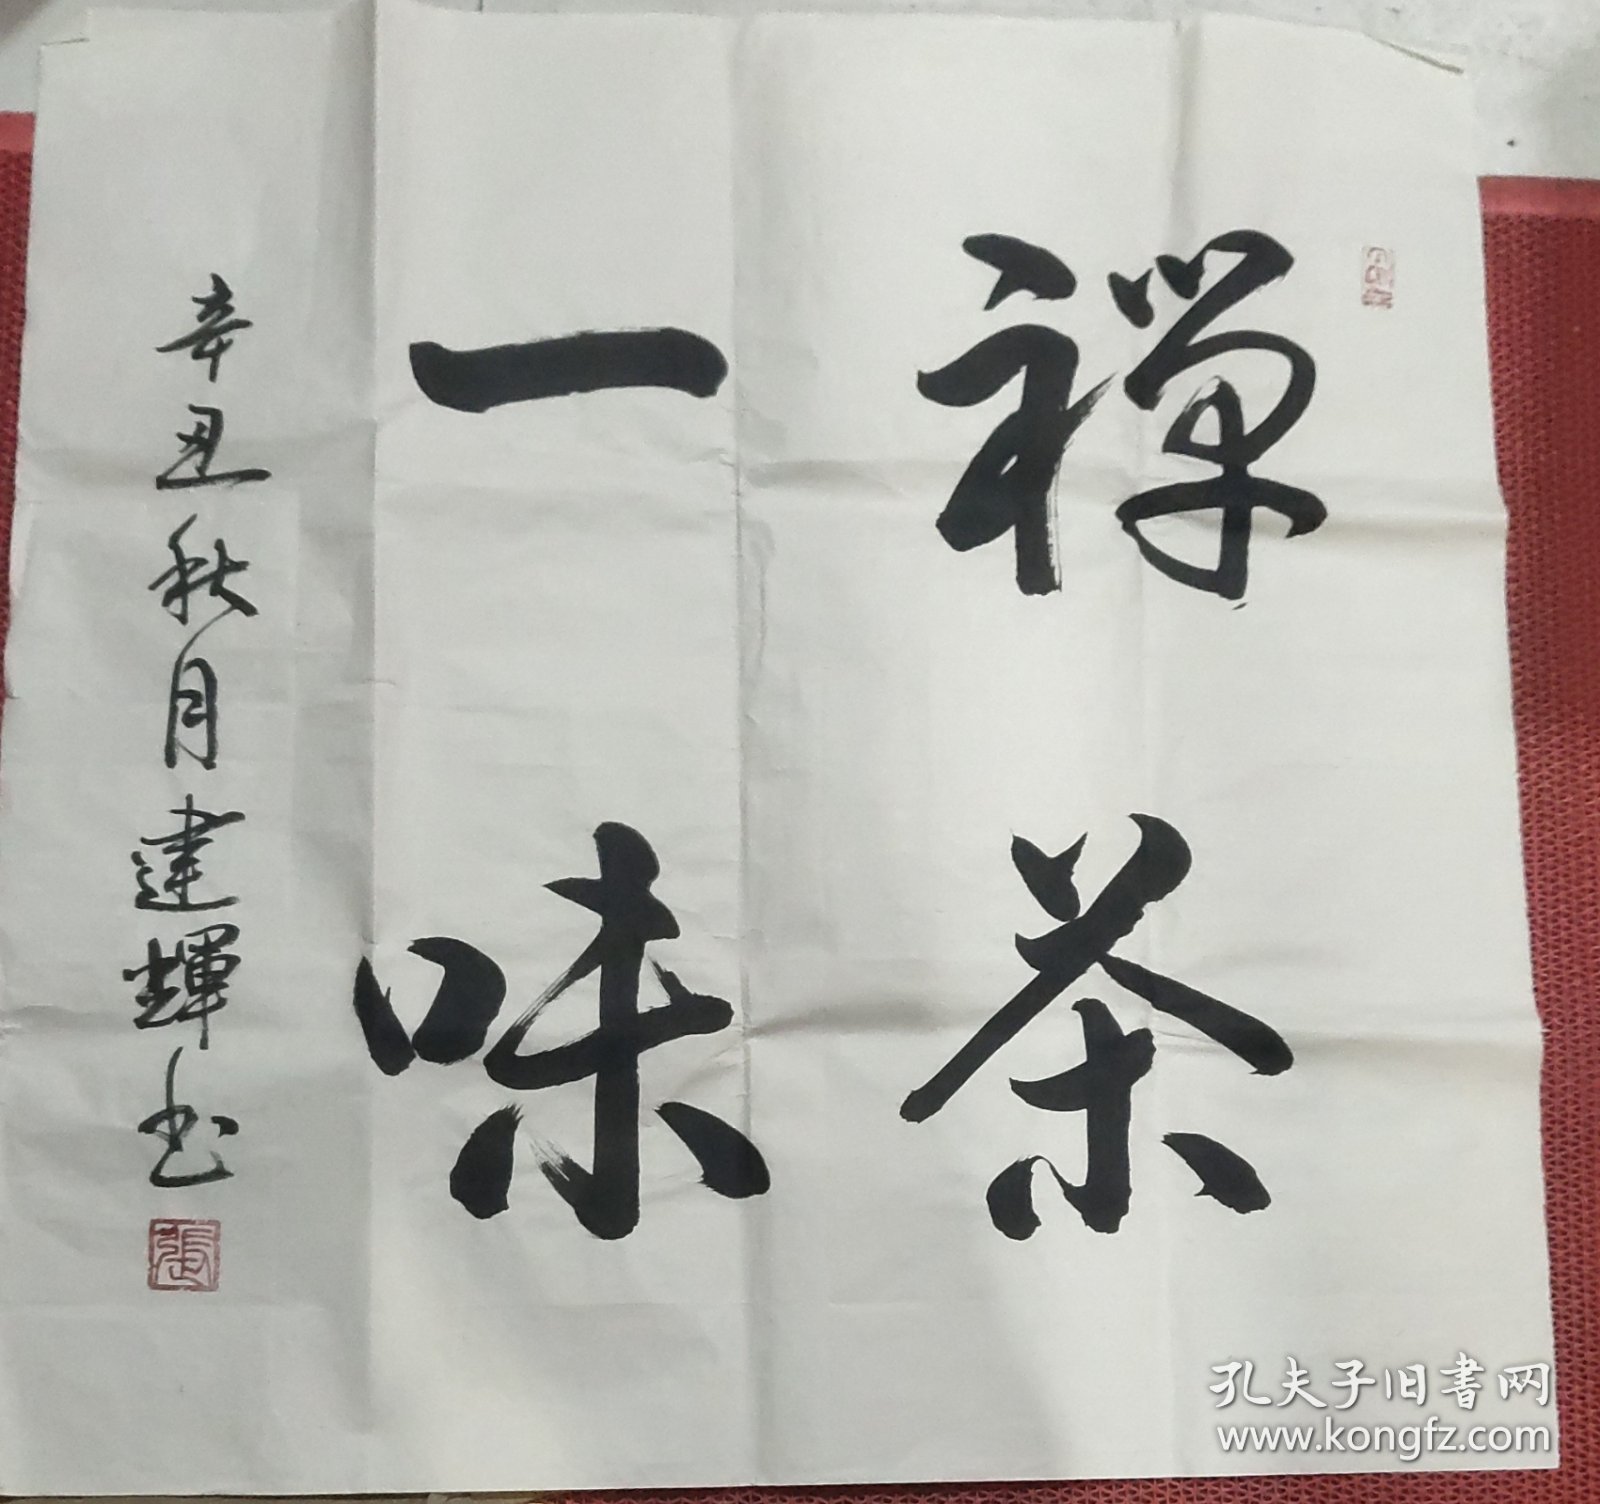 禅茶
一味
辛丑秋月建輝书
張
孔夫子旧书网
www.kongfz.com